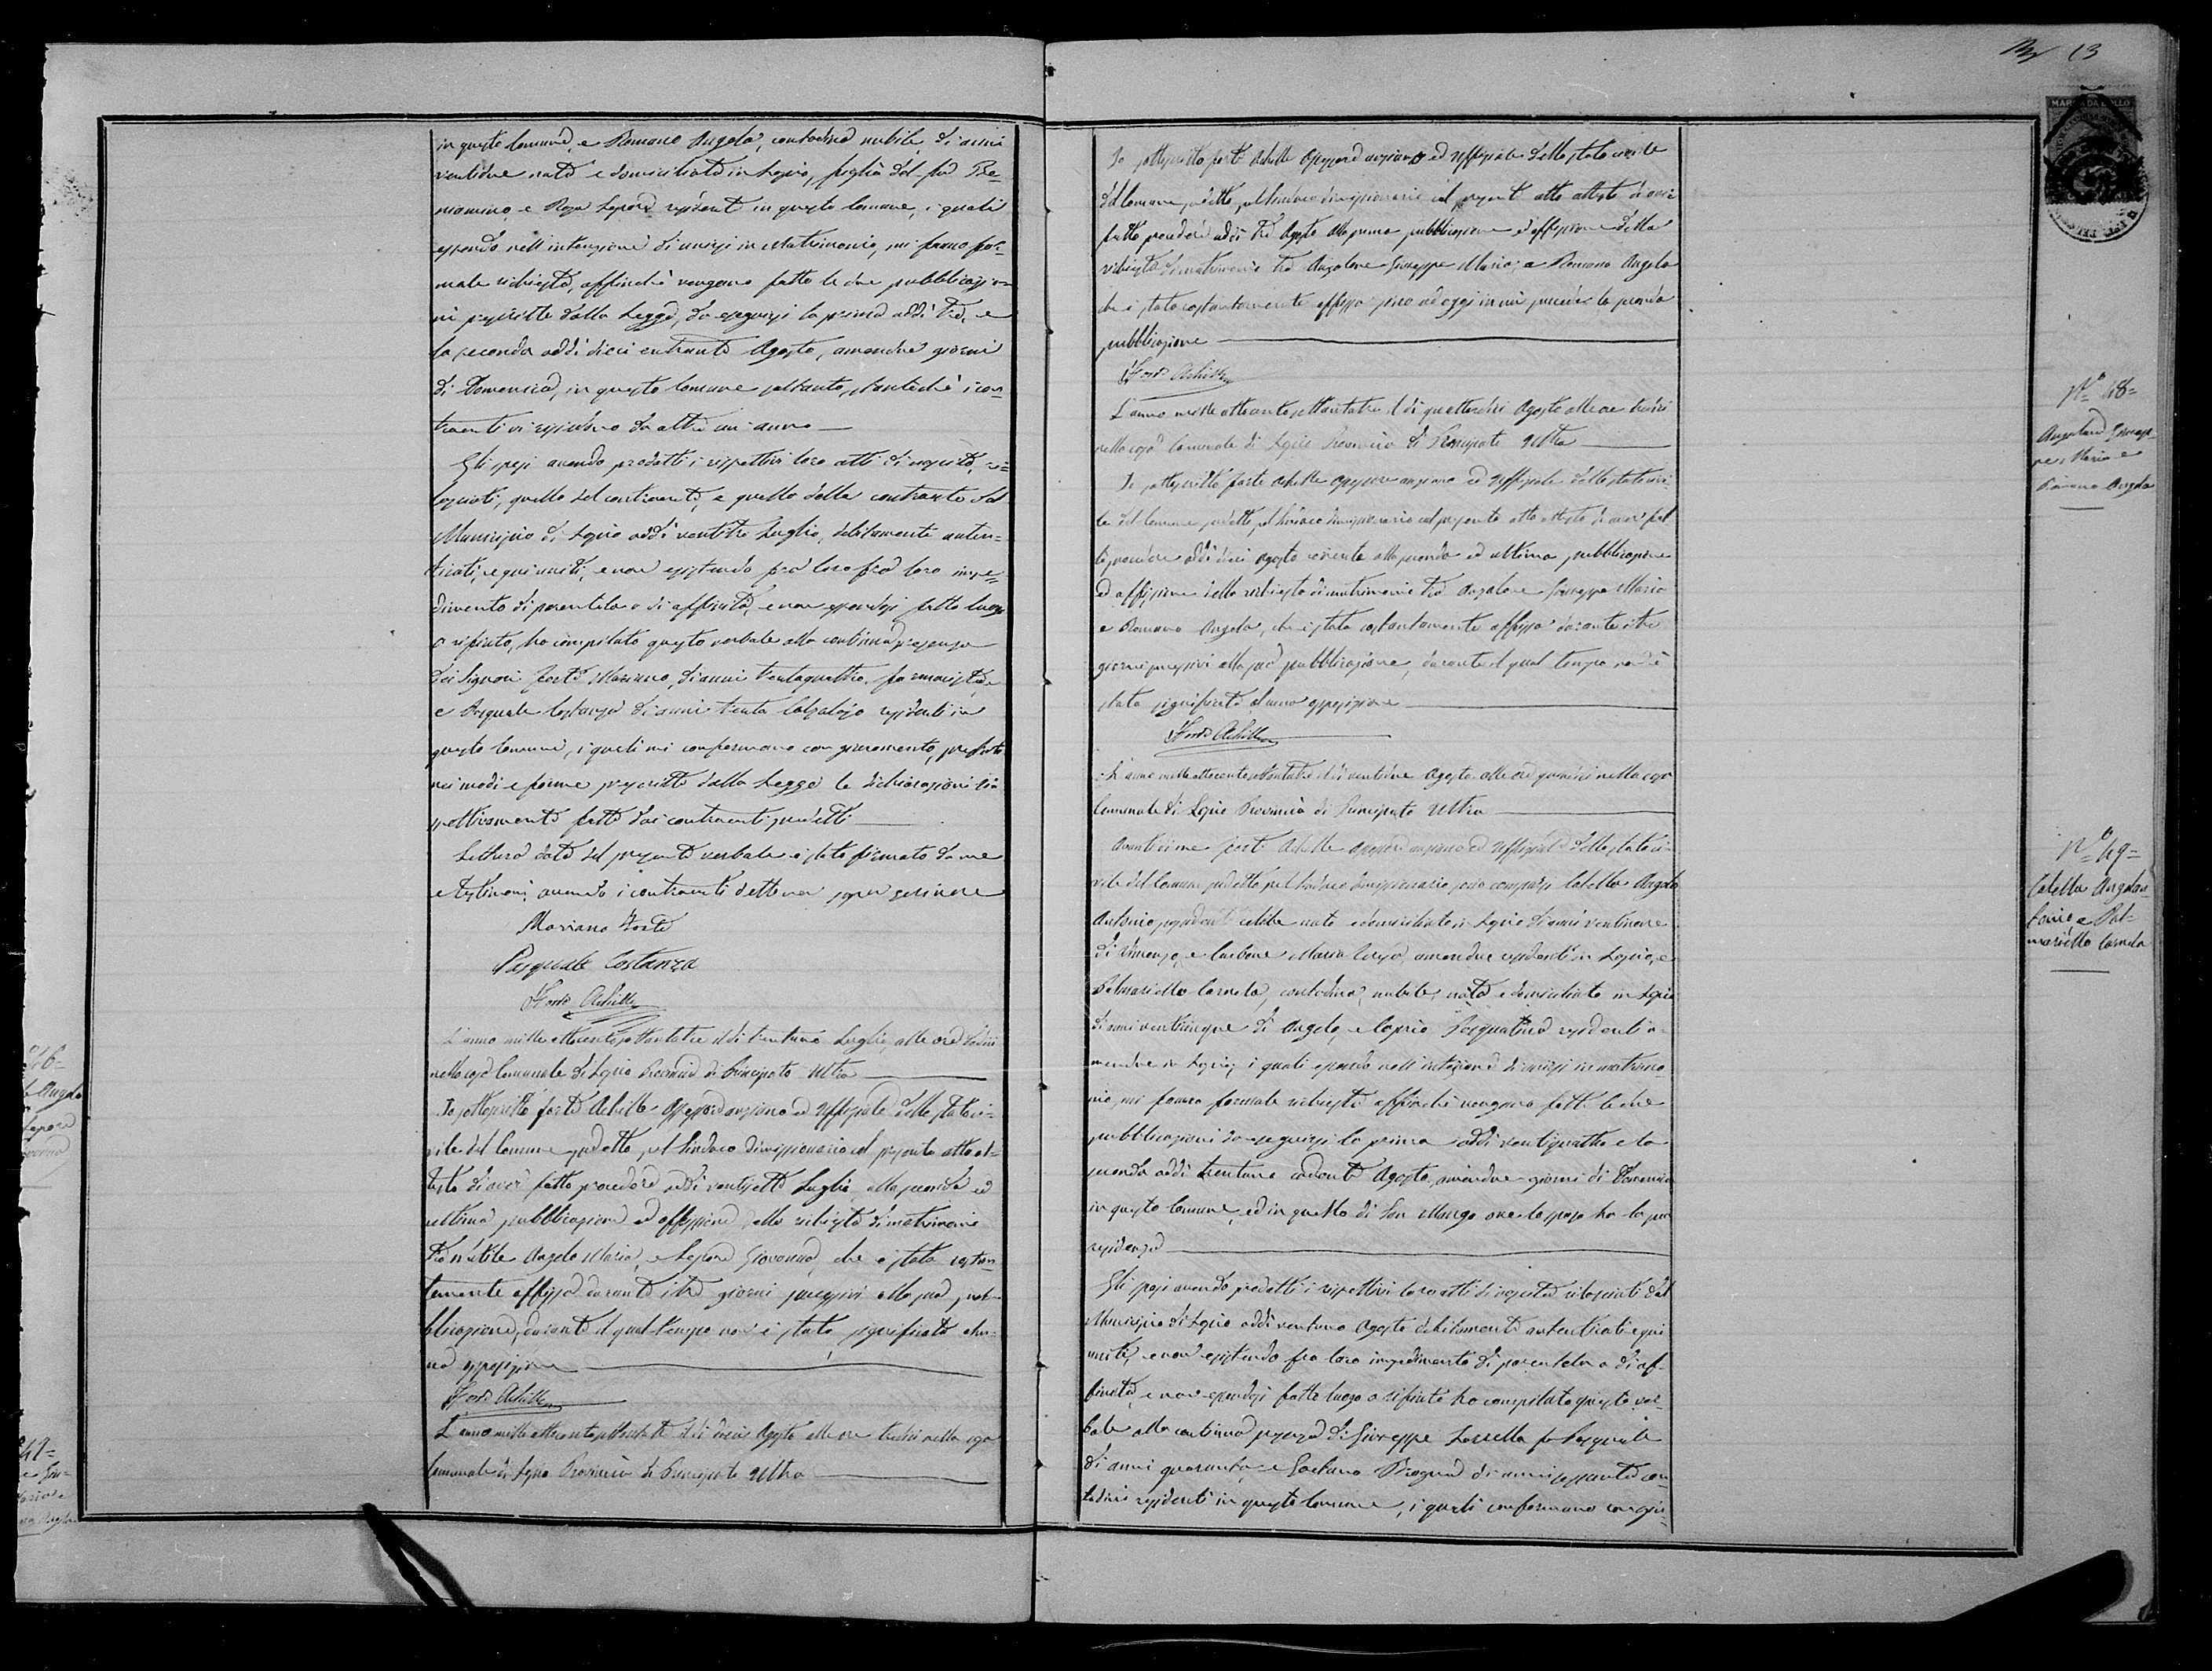 in questo Comune, e Romano Angela, contadina nubile, di anni
ventidue nata e domiciliata in Lapio, figlia del fu Be-
niamino, e Rosa Lepore residente in questo Comune, i quali
essendo nell'intenzione di unirsi in Matrimonio, mi fanno for-
male richiesta, affinché vengano fatte le due pubblicazio-
ni prescritte dalla Legge, da eseguirsi la prima addì tre, e
la seconda addì dieci entrante Agosto, amendue giorni
di Domenica, in questo Comune soltanto, stanteché i con-
traenti vi risiedono da oltre un anno
Gli sposi avendo prodotti i rispettivi loro atti di nascita, ri-
lasciati, quello del contraente, e quello della contraente dal
Municipio di Lapio addì ventitre Luglio, debitamente auten-
ticati, e qui uniti, e non esistendo fra loro fra loro impe-
dimento di parentela o di affinità, e non essendosi fatto luogo
a rifiuto, ho compilato questo verbale alla continua presenza
dei Signori Forte Mariano, di anni trentaquattro, farmacista,
e Pasquale Costanza di anni trenta Calzolajo residenti in
questo Comune, i quali mi confermano con giuramento, prestato
nei modi e forme prescritte dalla Legge le dichiarazioni ri-
spettivamente fatte dai contraenti predetti
Lettura data del presente verbale è stato firmato da me
e testimoni, avendo i contraenti detto non saper scrivere
Mariano Forte
Pasquale Costanza
Forte Achille
L'anno mille ottocento settantatre il dì trentuno Luglio, alle ore dodici
nella casa Comunale di Lapio Provincia di Principato Ultra
Io sottoscritto Forte Achille Assessore anziano ed Uffiziale dello stato ci-
vile del Comune predetto, pel Sindaco dimissionario col presente atto at-
testo di aver fatto procedere addì ventisette Luglio alla seconda ed
ultima pubblicazione ed affissione della richiesta di matrimonio
tra Angelo Maria, e Lepore Giovanna, che è stata costan-
temente affissa durante i tre giorni successivi alla sua pub-
blicazione, durante il qual tempo non è stata significata alcu-
na opposizione
Forte Achille
L'anno mille ottocento settantatre il dì dieci Agosto alle ore tredici nella casa
Comunale di Lapio Provincia di Principato Ultra
46=
Angelo
Lepore
47=
13
MARCA DA BOLLO
Io sottoscritto Forte Achille Assessore anziano ed Uffiziale dello stato civile
del Comune predetto, pel Sindaco dimissionario col presente atto attesto di aver
fatto procedere addì tre Agosto alla prima pubblicazione ed affissione della
richiesta di matrimonio tra Angelone Giuseppe Maria, e Romano Angela
che è stata costantemente affissa sino ad oggi in cui procede la seconda
pubblicazione
Forte Achille
L'anno mille ottocento settantatre il dì quattordici Agosto alle ore tredici
nella casa Comunale di Lapio Provincia di Principato Ultra
Io sottoscritto Forte Achille Assessore anziano ed Uffiziale dello stato civi-
le del Comune predetto, pel Sindaco dimissionario col presente atto attesto di aver fat-
to procedere addì dieci Agosto corrente alla seconda ed ultima pubblicazione
ed affissione della richiesta di matrimonio tra Angelone Giuseppe Maria
e Romano Angela, che è stata costantemente affissa durante i tre
giorni successivi alla sua pubblicazione, durante il qual tempo non è
stata significata alcuna opposizione
Forte Achille
L'anno mille ottocento settantatre il dì ventidue Agosto alle ore quindici nella casa
Comunale di Lapio Provincia di Principato Ultra
Avanti di me Forte Achille Assessore anziano ed Uffiziale dello stato ci-
vile del Comune predetto pel Sindaco dimissionario sono comparsi Caletta Angelo
Antonio celibe nato e domiciliato in Lapio di anni ventinove
di Vincenzo, e Carbone Maria amendue residenti in Lapio, e
Palmariello Carmela, contadina, nubile, nata e domiciliata in Lapio
di anni venticinque di Angelo, e Caprio Pasqualina residenti a-
mendue in Lapio, i quali essendo nell'intenzione di unirsi in matrimo-
nio, mi fanno formale richiesta affinché vengano fatte le due
pubblicazioni da eseguirsi la prima addì ventiquattro e la
seconda addì trentuno cadente Agosto, amendue giorni di Domenica
in questo Comune, ed in quello di San Mango ove lo sposo ha la sua
residenza
Gli sposi avendo prodotti i rispettivi loro atti di nascita rilasciati dal
Municipio di Lapio addì ventuno Agosto debitamente autenticati e qui
uniti, e non esistendo fra loro impedimento di parentela o di af-
finità, e non essendosi fatto luogo a rifiuto ho compilato questo ver-
bale alla continua presenza di Giuseppe fu Pasquale
di anni quaranta, e Gaetano di anni sessanta con-
tadini residenti in questo Comune, i quali confermano con giu-
N.° 48=
Angelone Giusep-
pe Maria e
Romano Angela
N.° 49=
Caletta Angelan-
tonio e Pal-
mariello Carmela